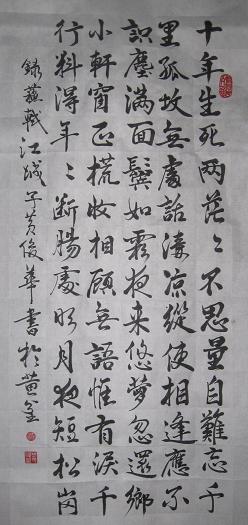 十年生死两茫々不思量自難忘千
里孤坟無處話凄凉縱使相逢應不
識塵滿面鬢如霜夜来悠夢忽還鄉
小軒窗正梳妝相顧無語惟有淚千
行料得年々断腸處明月夜短松岗
録蘇軾江城子黄俊華書於